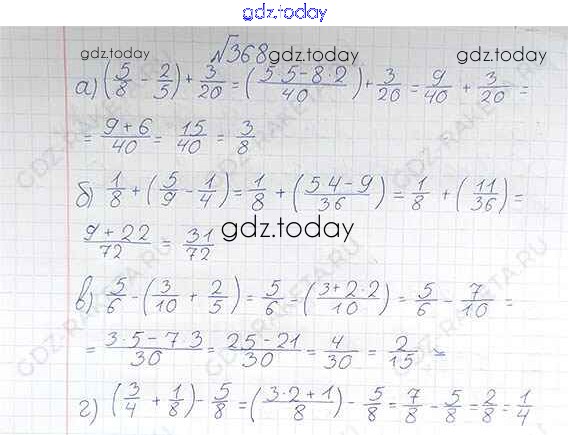 gdz.today
№368
gdz.today gdz.today
а) (5/8 - 2/5) + 3/20 = (5·5-8·2/40) + 3/20 = 9/40 + 3/20 =
= 9+6/40 = 15/40 = 3/8
б) 1/8 + (5/9 - 1/4) = 1/8 + (5·4-9/36) = 1/8 + (11/36) =
9+22/72 = 31/72
gdz.today
в) 5/6 - (3/10 + 2/5) = 5/6 - (3+2·2/10) = 5/6 - 7/10 =
= 3·5-7·3/30 = 25-21/30 = 4/30 = 2/15
г) (3/4 + 1/8) - 5/8 = (3·2+1/8) - 5/8 = 7/8 - 5/8 = 2/8 = 1/4
GDZ-RAKETA.RU